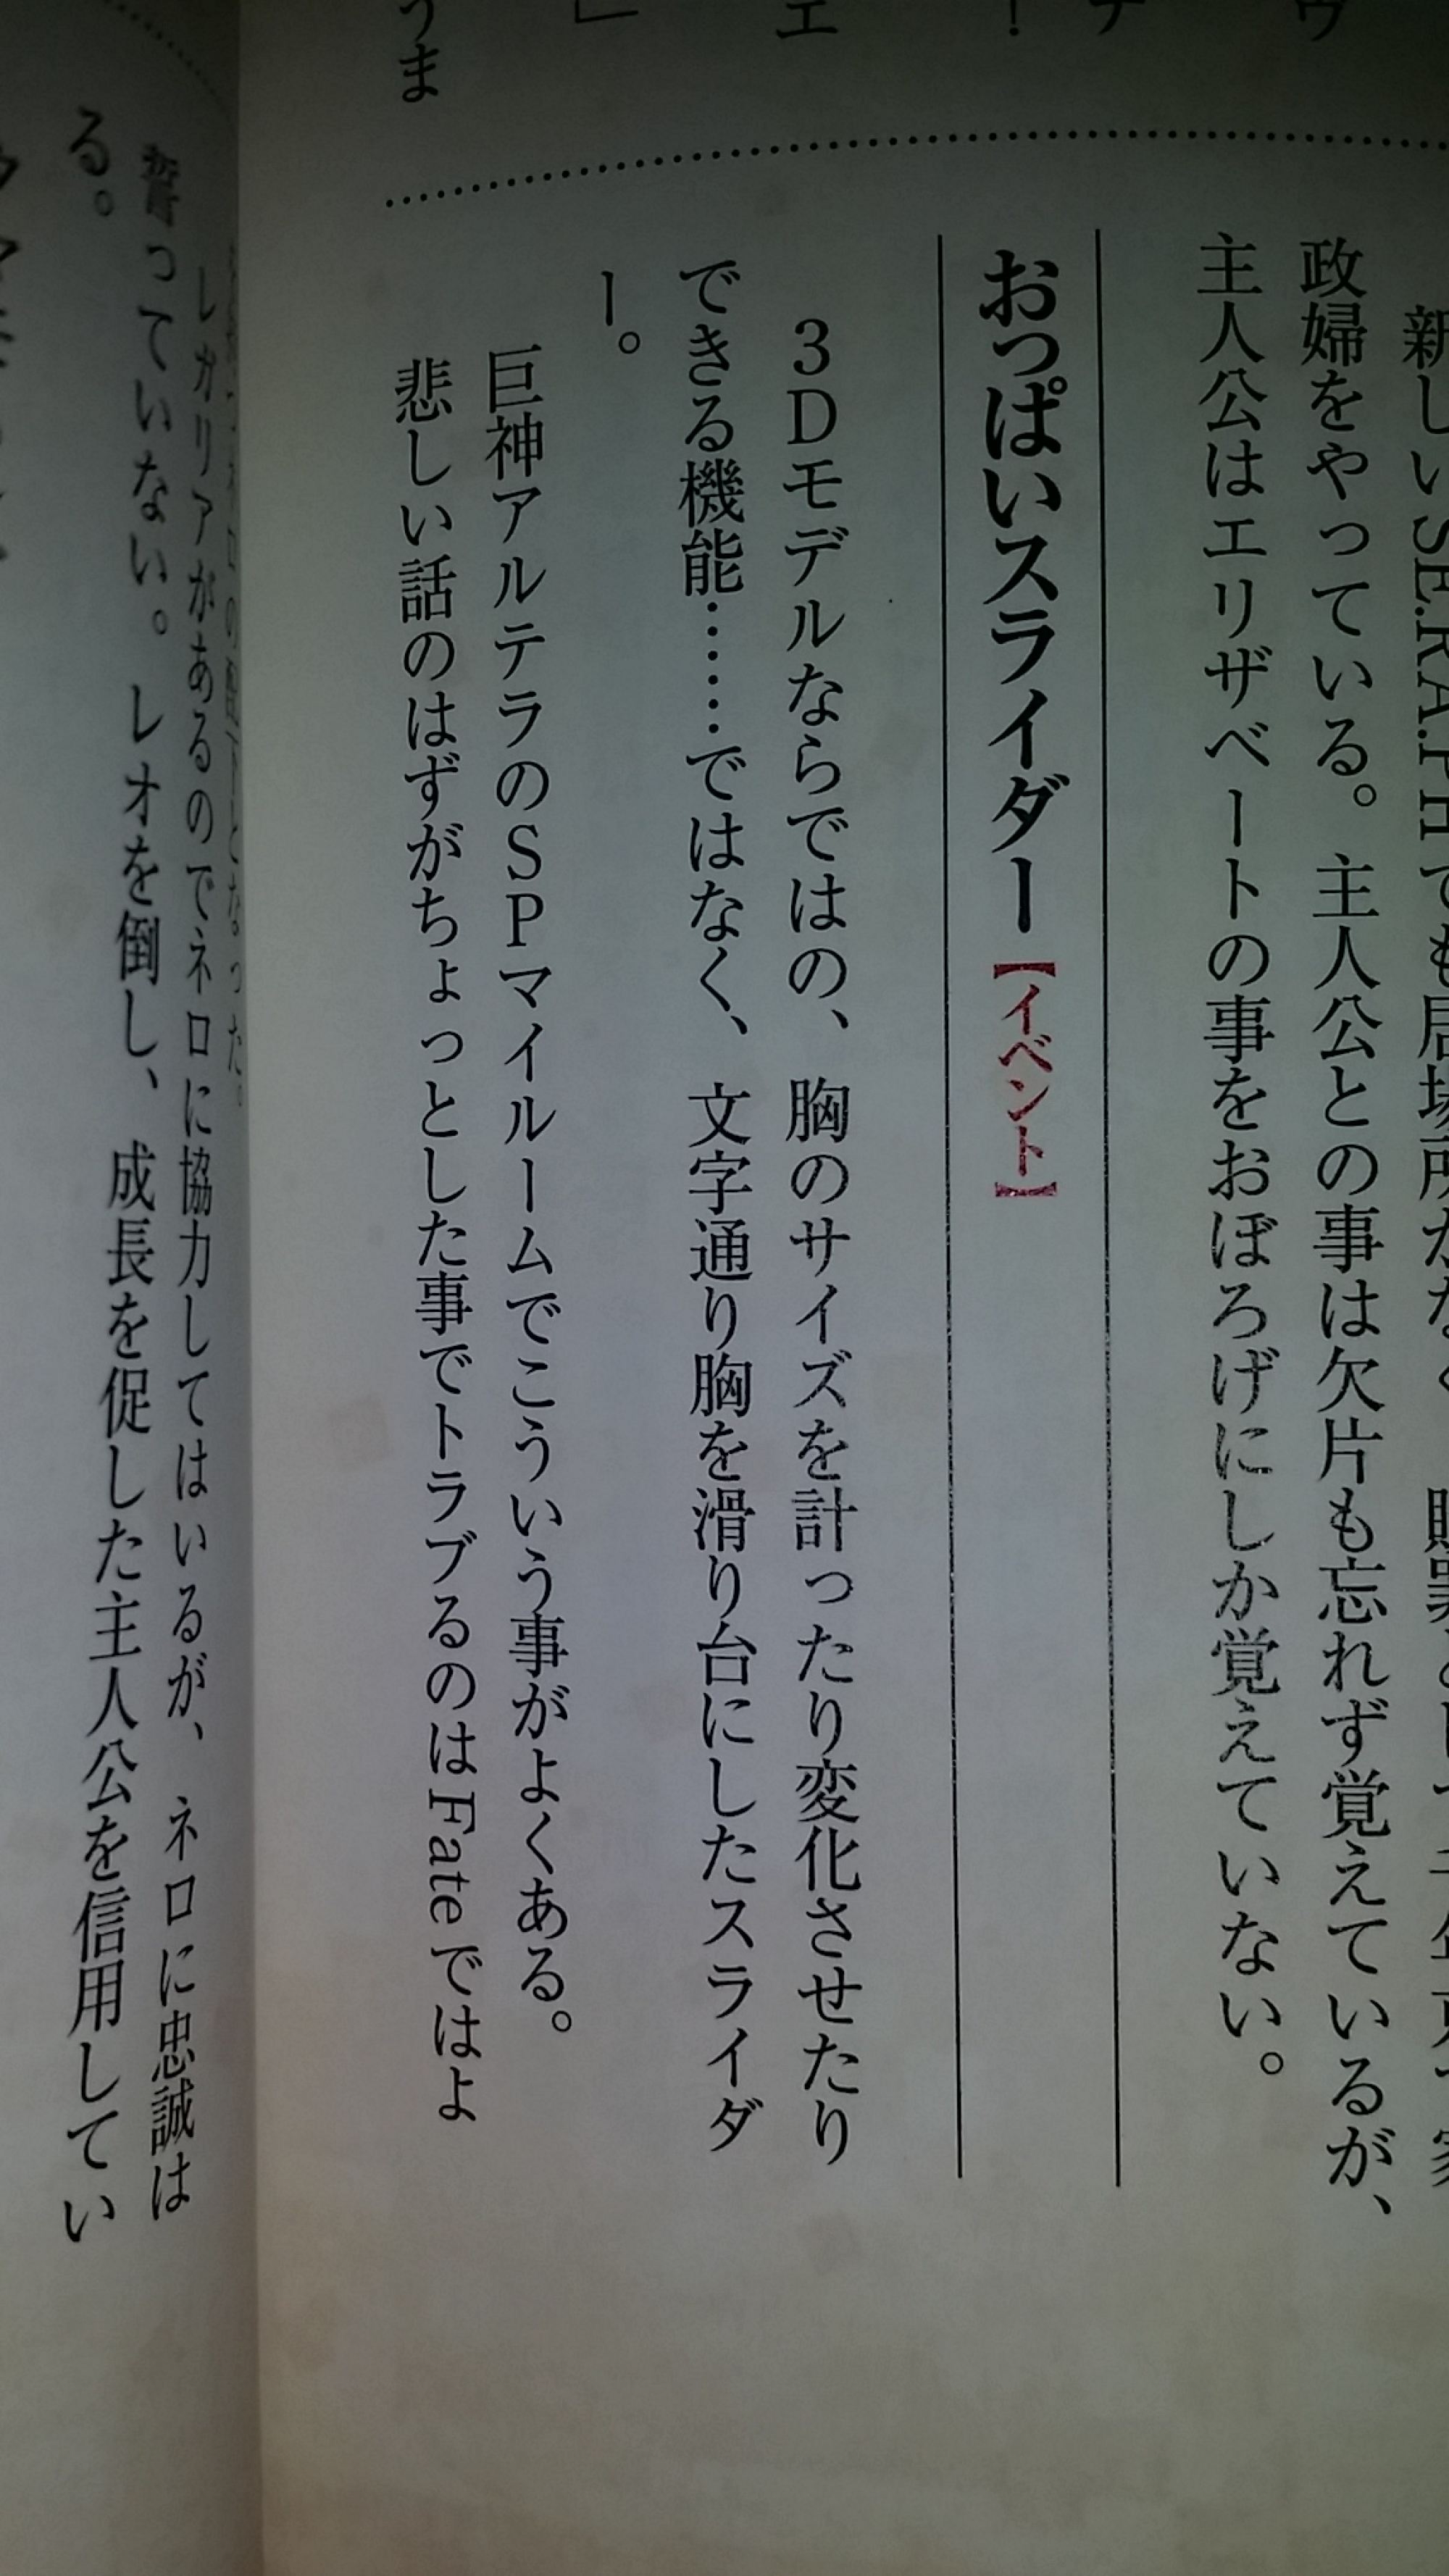 新しいSE.RA.PHでも居場所がなく
政婦をやっている。主人公との事は欠片も忘れず覚えているが、
主人公はエリザベートの事をおぼろげにしか覚えていない。
おっぱいスライダー【イベント】
３Ｄモデルならではの、胸のサイズを計ったり変化させたり
できる機能……ではなく、文字通り胸を滑り台にしたスライダ
ー。
巨神アルテラのＳＰマイルームでこういう事がよくある。
悲しい話のはずがちょっとした事でトラブるのはFateではよ
うま
レガリアがあるのでネロに協力してはいるが、ネロに忠誠は
誓っていない。レオを倒し、成長を促した主人公を信用してい
る。